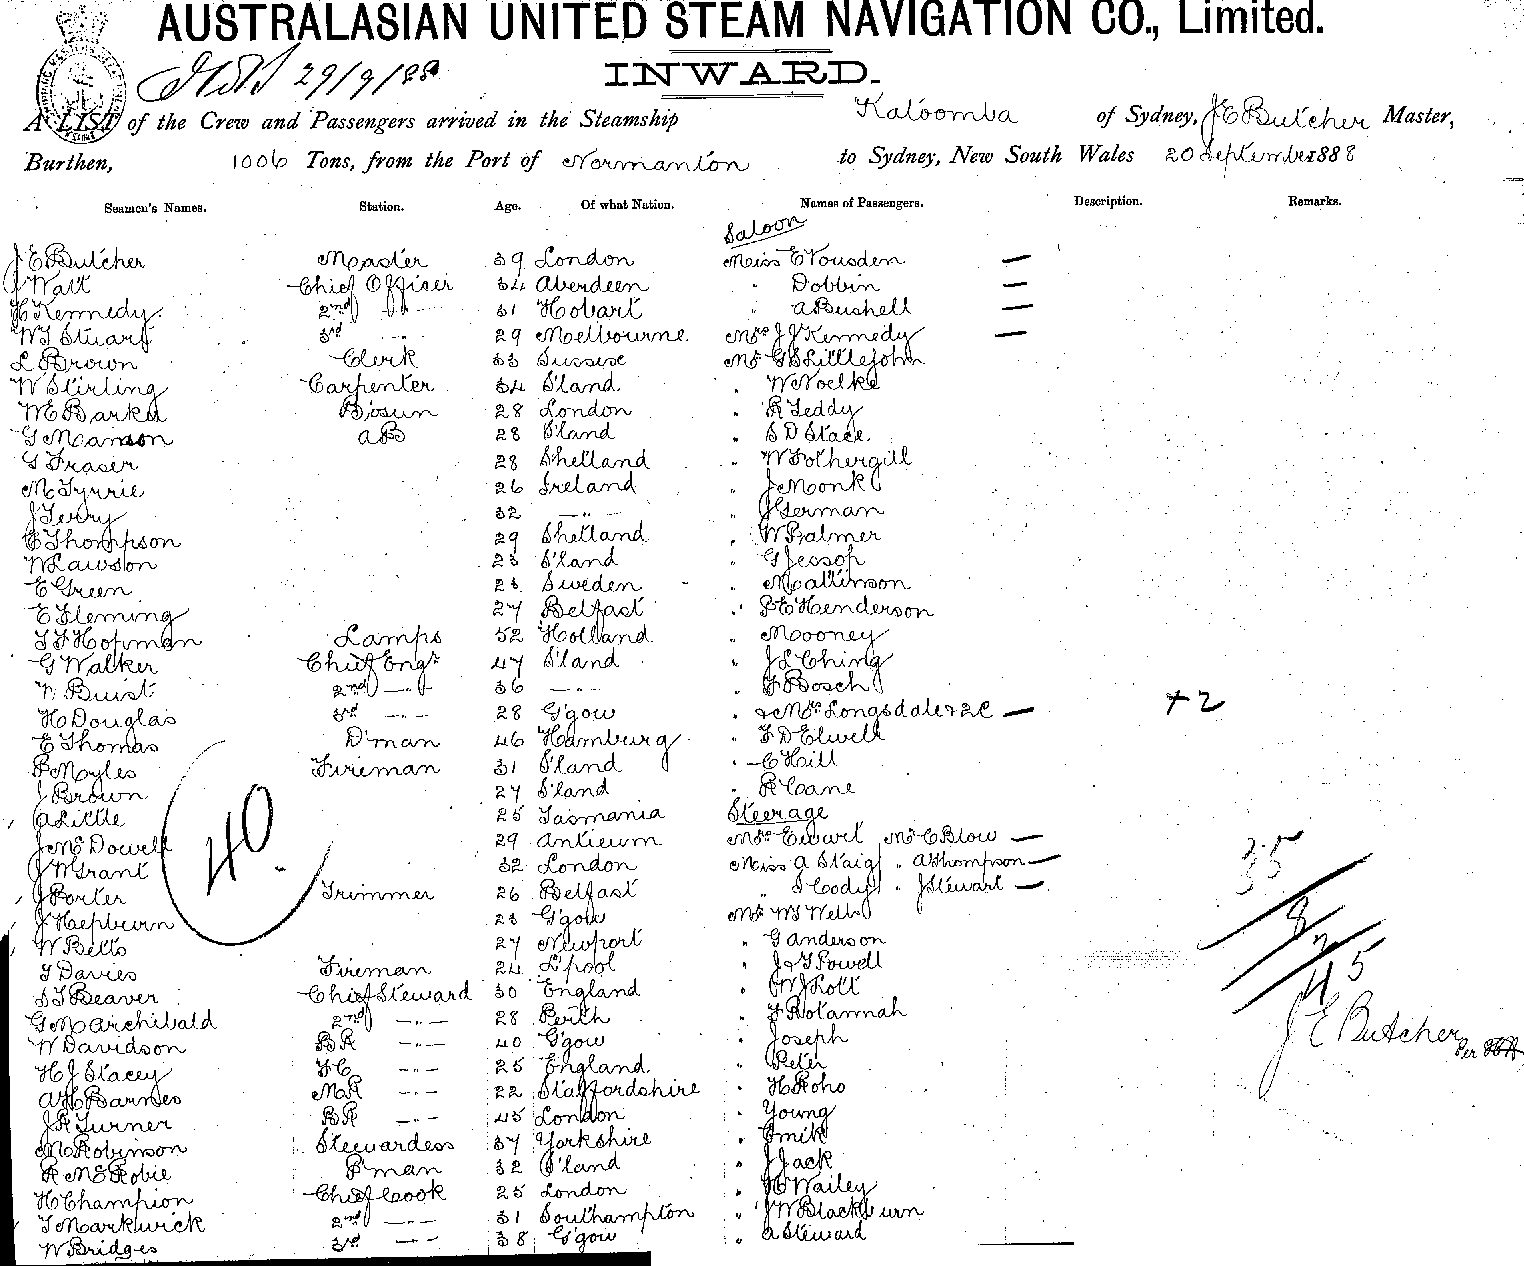 AUSTRALASIAN UNITED STEAM NAVIGATION CO., Limited.
29/9/88
INWARD.
A LIST of the Crew and Passengers arrived in the Steamship Katoomba of Sydney, J E Butcher Master,
Burthen, 1006 Tons, from the Port of Normanton to Sydney, New South Wales 20 September 1888
Seamen's Names. Station. Age. Of what Nation. Names of Passengers. Description. Remarks.
Saloon
J E Butcher Master 39 London Miss E Vousden —
J Watt Chief Officer 34 Aberdeen " Dobbin —
H Kennedy 2nd -"- 31 Hobart " A Bushell —
W J Stuart 3rd -"- 29 Melbourne Mrs J J Kennedy —
L Brown Clerk 33 Sussex Mr G S Littlejohn
W Stirling Carpenter 34 S'land " W Noelke
W E Barker Bosun 28 London " R Leddy
G Manson AB 28 S'land " S D Stace
G Fraser 28 Shetland " W Fothergill
Mc Tyrrie 26 Ireland " J Monk
J Terry 32 -"- " J German
E Thompson 29 Shetland " W Palmer
W Lawson 23 S'land " G Jessop
E Green 23 Sweden " McAllinson
E Fleming 27 Belfast " P E Henderson
T F Hofman Lamps 52 Holland " Mooney
G Walker Chief Engr 47 S'land " J L Ching
W Buist 2nd -"- 36 -"- " F Bosch
H Douglas 3rd -"- 28 G'gow " & Mrs Longsdale & 2C — +2
E Thomas D'man 46 Hamburg " F D Elwell
P Myles Fireman 31 S'land " C Hill
J Brown 27 S'land " R Cane
A Little 25 Tasmania Steerage
J McDowell 29 Antieum Mrs Ewart Mr C Blow —
J M Grant 32 London Miss A Staig " A Thompson — 35
J Porter Trimmer 26 Belfast " S Cody " J Stewart —
40
J Hepburn 23 G'gow Mr W J Webb 8
W Betts 27 Newport " G Anderson 2
T Davies Fireman 24 L'pool " J & T Powell 45
S T Beaver Chief Steward 30 England " W J Lott
G M Archibald 2nd -"- 28 Perth " F Rotannah
W Davidson BR -"- 40 G'gow " Joseph J E Butcher
H J Stacey FC -"- 25 England " Peter Per
A H Barnes MR -"- 22 Staffordshire " H Roho
J R Turner BR -"- 45 London " Young
M Robinson Stewardess 37 Yorkshire " Emile
R McRobie P'man 32 S'land " J Jack
H Champion Chief Cook 25 London " H Wailey
T Markwick 2nd -"- 31 Southampton " J W Blackburn
W Bridges 3rd -"- 38 G'gow " A Steward